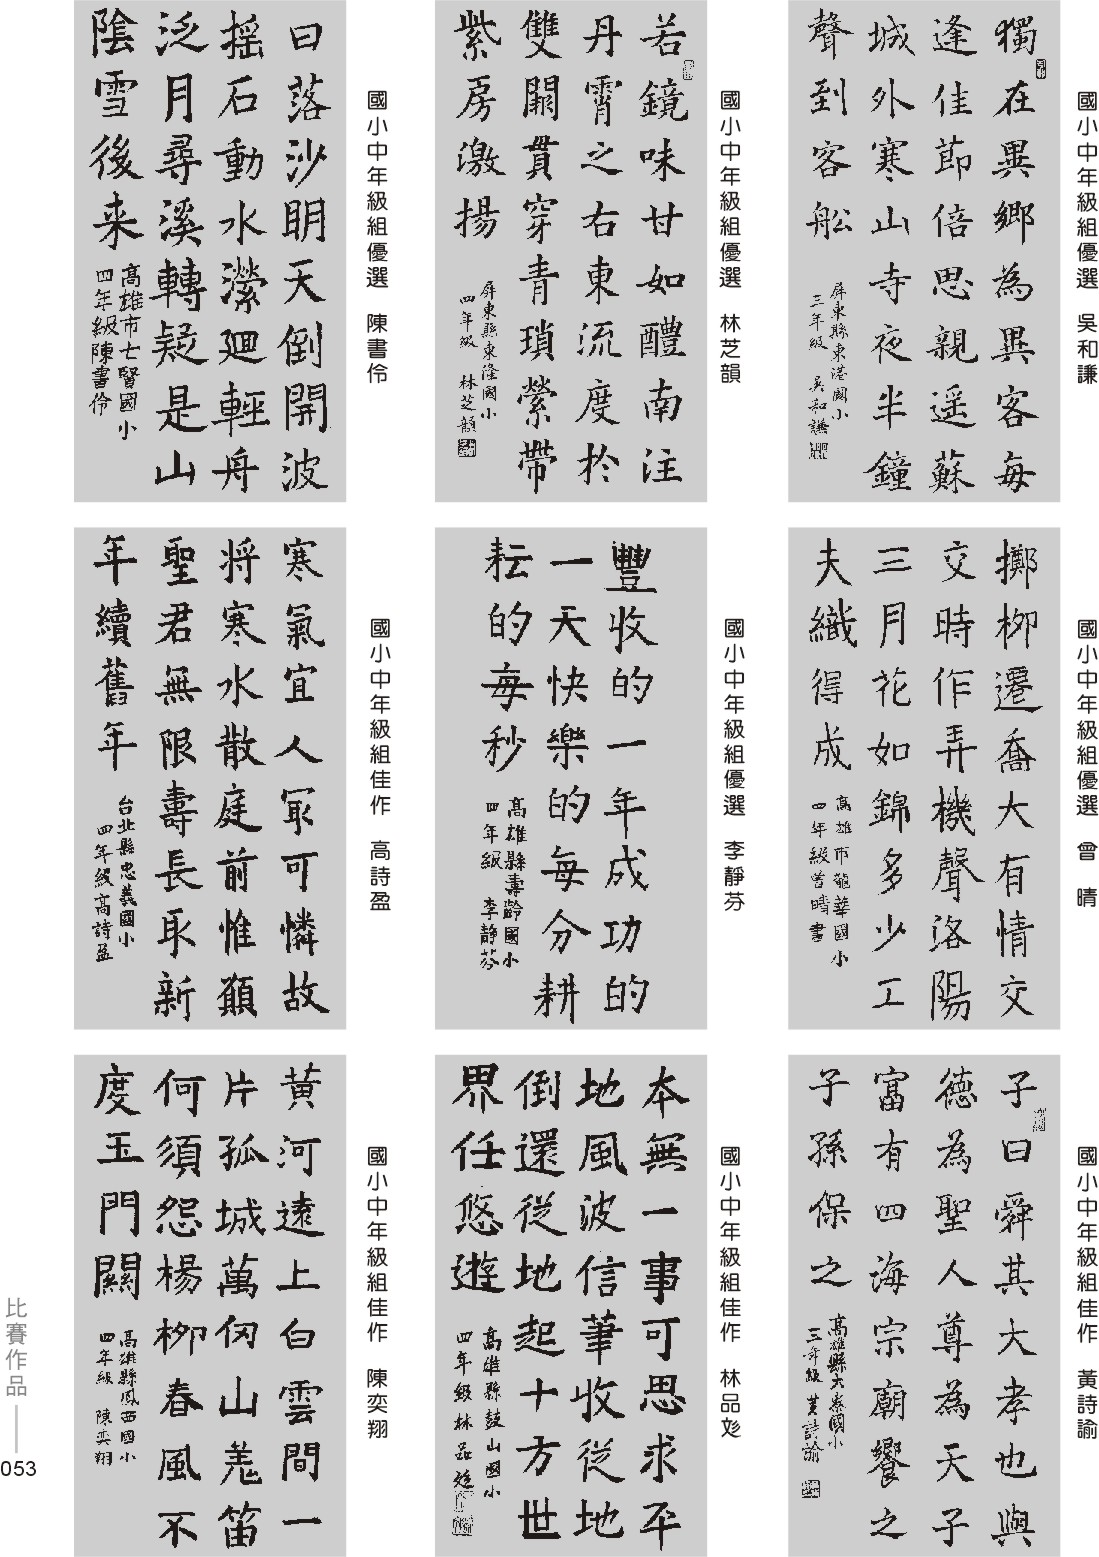 獨在異鄉為異客每
逢佳節倍思親遥蘇
城外寒山寺夜半鐘
聲到客船
屏東縣東港國小
三年級 吳和謙
國小中年級組優選 吳和謙
若鏡味甘如醴南注
丹霄之右東流度於
雙闕貫穿青瑣縈帶
紫房激揚
屏東縣東隆國小
四年級 林芝韻
國小中年級組優選 林芝韻
日落沙明天倒開波
摇石動水瀠廻輕舟
泛月尋溪轉疑是山
陰雪後来
高雄市七賢國小
四年級陳書伶
國小中年級組優選 陳書伶
擲柳遷喬大有情交
交時作弄機聲洛陽
三月花如錦多少工
夫織得成
高雄市龍華國小
四年級曾晴書
國小中年級組優選 曾晴
豐收的一年成功的
一天快樂的每分耕
耘的每秒
高雄縣壽齡國小
四年級 李靜芬
國小中年級組優選 李靜芬
寒氣宜人冣可憐故
將寒水散庭前惟願
聖君無限壽長取新
年續舊年
台北縣忠義國小
四年級高詩盈
國小中年級組佳作 高詩盈
子曰舜其大孝也與
德為聖人尊為天子
富有四海宗廟饗之
子孫保之
三年級 黃詩諭
國小中年級組佳作 黃詩諭
本無一事可思求平
地風波信筆收從地
倒還從地起十方世
界任悠遊
高雄縣鼓山國小
四年級林品彣
國小中年級組佳作 林品彣
黃河遠上白雲間一
片孤城萬仞山羗笛
何須怨楊柳春風不
度玉門關
高雄縣鳳西國小
四年級 陳奕翔
國小中年級組佳作 陳奕翔
比賽作品
053